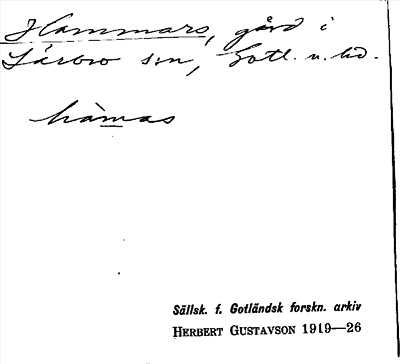 Hammars, gård i
Lärbro sn, Gotl. n. hd.
hàmas
Sällsk. f. Gotländsk forskn. arkiv
HERBERT GUSTAVSON 1919—26